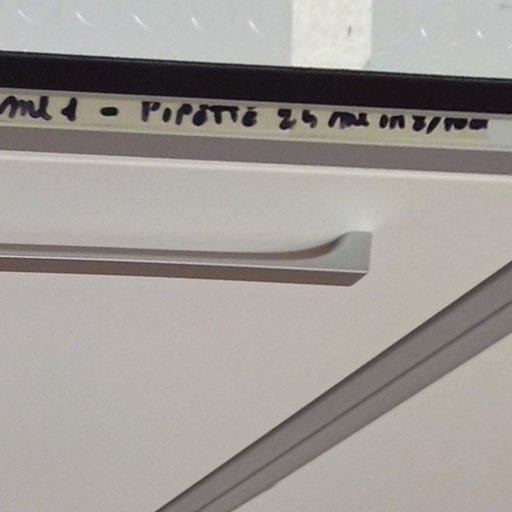 ml 1 - PIPETTE 25 ml in